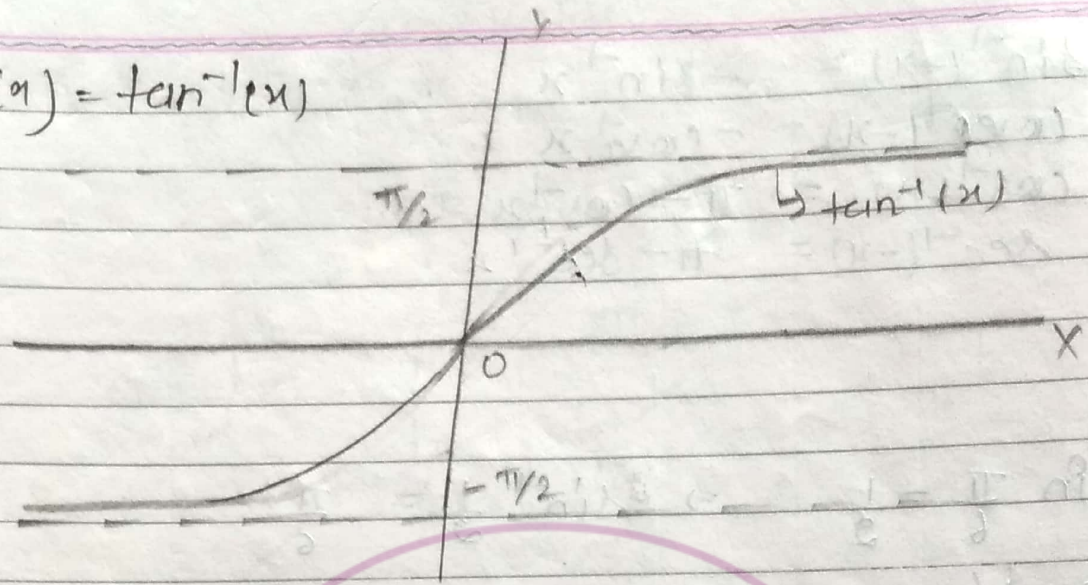 Y
x) = tan⁻¹(x)
π/2
↳ tan⁻¹(x)
X
O
-π/2